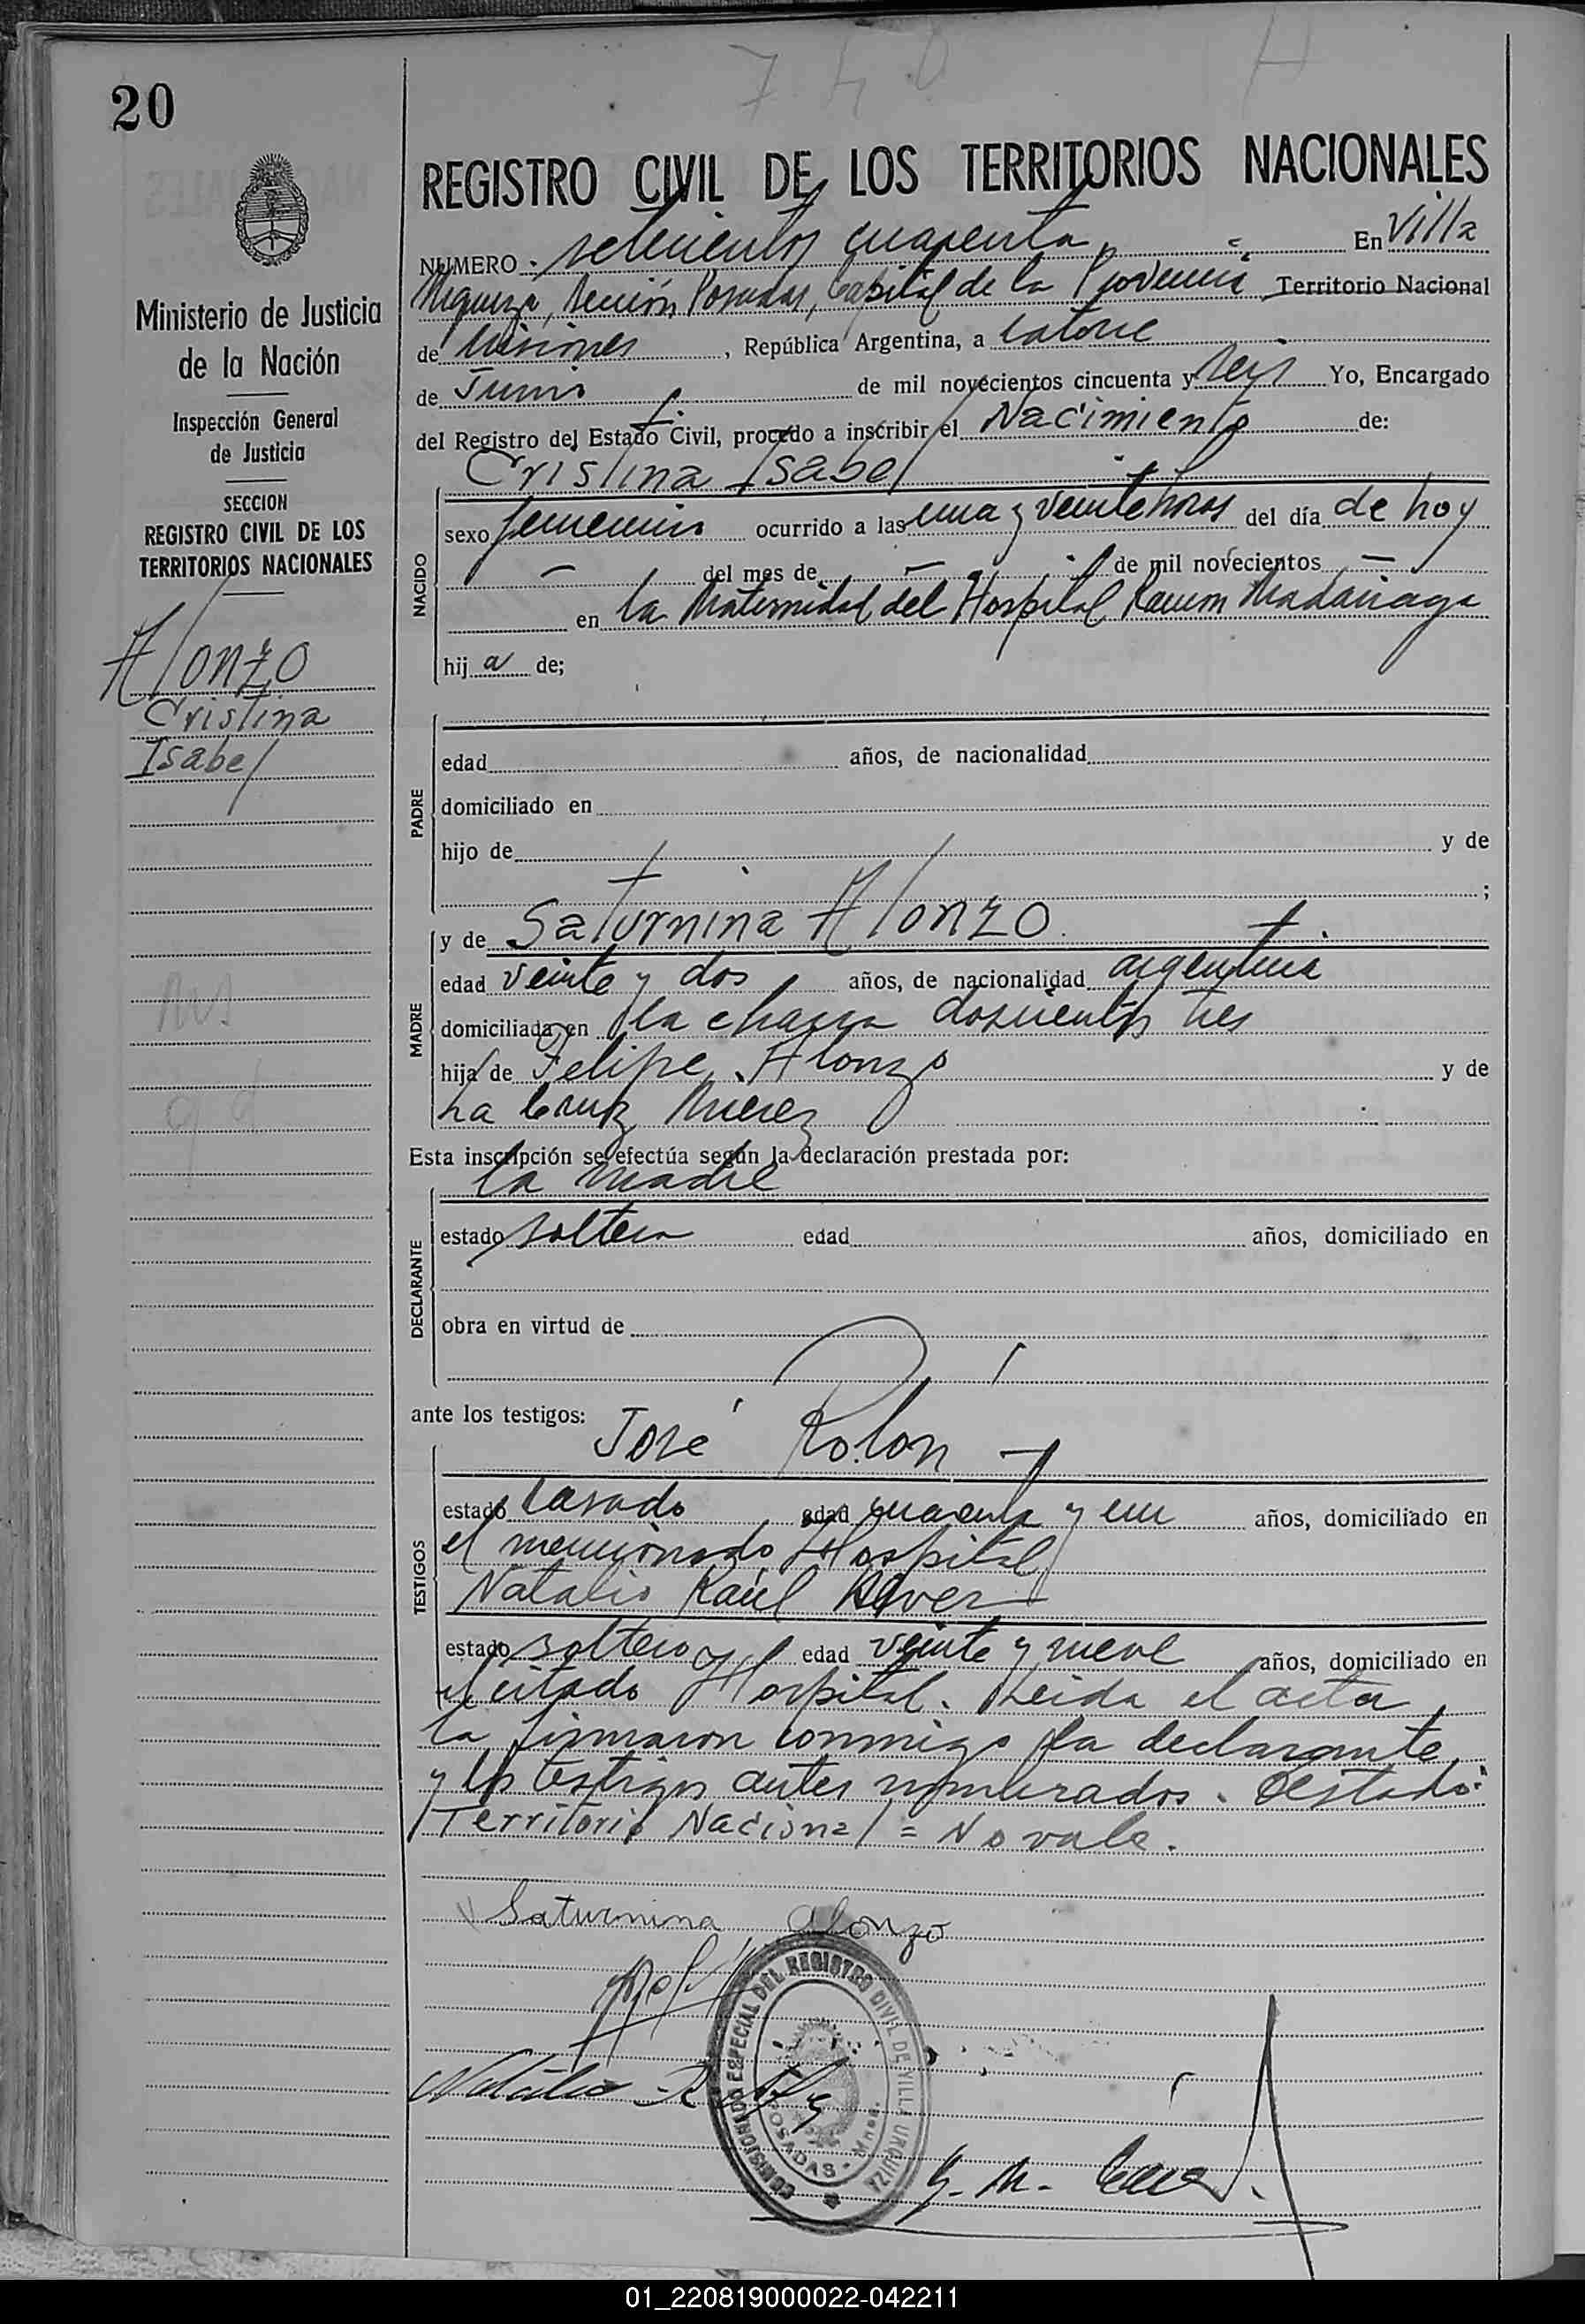 740
20
REGISTRO CIVIL DE LOS TERRITORIOS NACIONALES
NUMERO setecientos cuarenta En Villa
Urquiza, Sección Posadas, Capital de la Provincia Territorio Nacional
de Misiones, República Argentina, a catorce
de Junio de mil novecientos cincuenta y seis Yo, Encargado
del Registro del Estado Civil, procedo a inscribir el Nacimiento de:
Cristina Isabel
NACIDO
sexo femenino ocurrido a las una y veinte horas del día de hoy
— del mes de — de mil novecientos —
en la Maternidad del Hospital Ramón Madariaga
hij a de;
Ministerio de Justicia
de la Nación
Inspección General
de Justicia
SECCION
REGISTRO CIVIL DE LOS
TERRITORIOS NACIONALES
Alonzo
Cristina
Isabel
PADRE
edad años, de nacionalidad
domiciliado en
hijo de y de
;
MADRE
y de Saturnina Alonzo.
edad veinte y dos años, de nacionalidad argentina
domiciliada en la chacra doscientos tres
hija de Felipe Alonzo y de
La Cruz Mierez
Esta inscripción se efectúa según la declaración prestada por:
la madre
DECLARANTE
estado soltera edad años, domiciliado en
obra en virtud de
ante los testigos:
José Rolon
TESTIGOS
estado casado edad cuarenta y un años, domiciliado en
el mencionado Hospital
Natalio Raúl
estado soltero edad veinte y nueve años, domiciliado en
el citado Hospital. Leida el acta,
la firmaron conmigo la declarante
y los testigos antes nombrados. Testado:
Territorio Nacional = No vale.
Saturnina Alonzo
Natalio R
COMISIONADO ESPECIAL DEL REGISTRO CIVIL DE VILLA URQUIZA
POSADAS - Mnes.
01_220819000022-042211